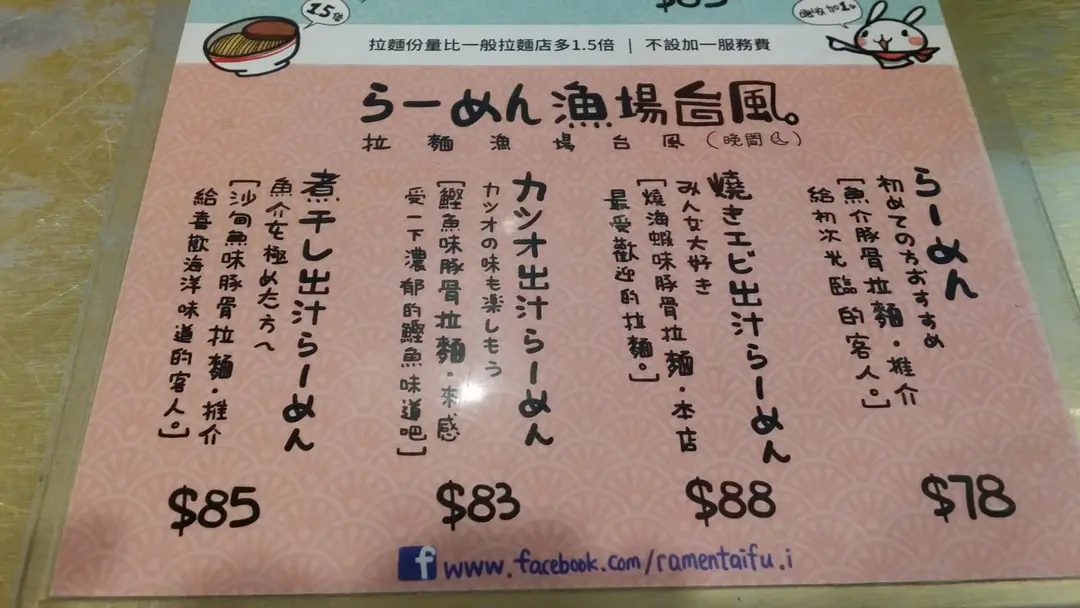 1.5倍
拉麵份量比一般拉麵店多1.5倍 | 不設加一服務費
らーめん漁場台風。
拉麵漁場台風(晚間)
らーめん
初めての方おすすめ
[魚介豚骨拉麵·推介
給初次光臨的客人。]
$78
燒きエビ出汁らーめん
みんな大好き
[燒海蝦味豚骨拉麵·本店
最受歡迎的拉麵。]
$88
カツオ出汁らーめん
カツオの味も楽しもう
[鰹魚味豚骨拉麵·來感
受一下濃郁的鰹魚味道吧]
$83
煮干し出汁らーめん
魚介を極めた方へ
[沙甸魚味豚骨拉麵·推介
給喜歡海洋味道的客人。]
$85
f www.facebook.com/ramentaifu.i